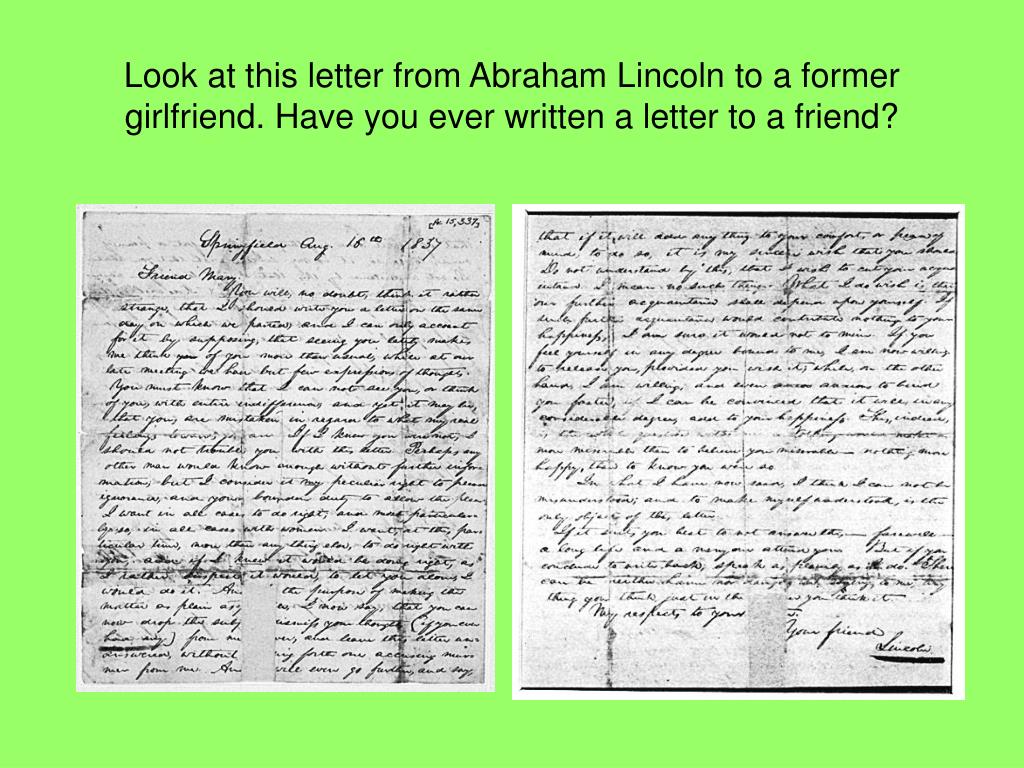 Look at this letter from Abraham Lincoln to a former
girlfriend. Have you ever written a letter to a friend?
Springfield Aug. 16th 1837
Friend Mary.
You will, no doubt, think it rather
strange, that I should write you a letter on the same
day on which we parted; and I can only account
for it by supposing, that seeing you lately makes
me think of you more than usual, while at our
late meeting we had but few expressions of thoughts.
You must know that I can not see you, or think
of you, with entire indifference; and yet it may be,
that you, are mistaken in regard to what my real
feelings towards you are. If I knew you were not, I
should not trouble you with this letter. Perhaps any
other man would know enough without further infor-
mation; but I consider it my peculiar right to plead
ignorance, and your bounden duty to allow the plea.
I want in all cases to do right, and most particular-
ly so, in all cases with women. I want, at this par-
ticular time, more than any thing else, to do right with
you, and if I knew it would be doing right, as
I rather suspect it would, to let you alone, I
would do it. An the purpose of making the
matter as plain as I now say, that you can
now drop the sub your thoughts (if you ever
had any) from me and leave this letter un-
answered, without forth one accusing mur
mer from me. An will even go further, and say,
that if it will add any thing to your comfort, or peace of
mind, to do so, it is my sincere wish that you should
Do not understand by this, that I wish to cut your acqua
intance. I mean no such thing. What I do wish is that
our further acquaintance shall depend upon yourself. If
such further acquaintance would contribute nothing to your
happiness, I am sure it would not to mine. If you
feel yourself in any degree bound to me, I am now willing
to release you, provided you wish it; while, on the other
hand, I am willing, and even anxious to bind
you faster, if I can be convinced that it will, in any
considerable degree, add to your happiness. This, indeed,
is the whole question with me. Nothing would make me
more miserable than to believe you miserable— nothing more
happy, than to know you were so.
In what I have now said, I think I can not be
misunderstood; and to make myself understood, is the
only object of this letter.
If it suits you best to not answer this— farewell—
a long life and a merry one attend you. But if you
conclude to write back, speak as plainly as I do. There
can be neither harm nor danger, in saying, to me, any
thing you think, just in the you think it.
My respects to your
Your friend
Lincoln